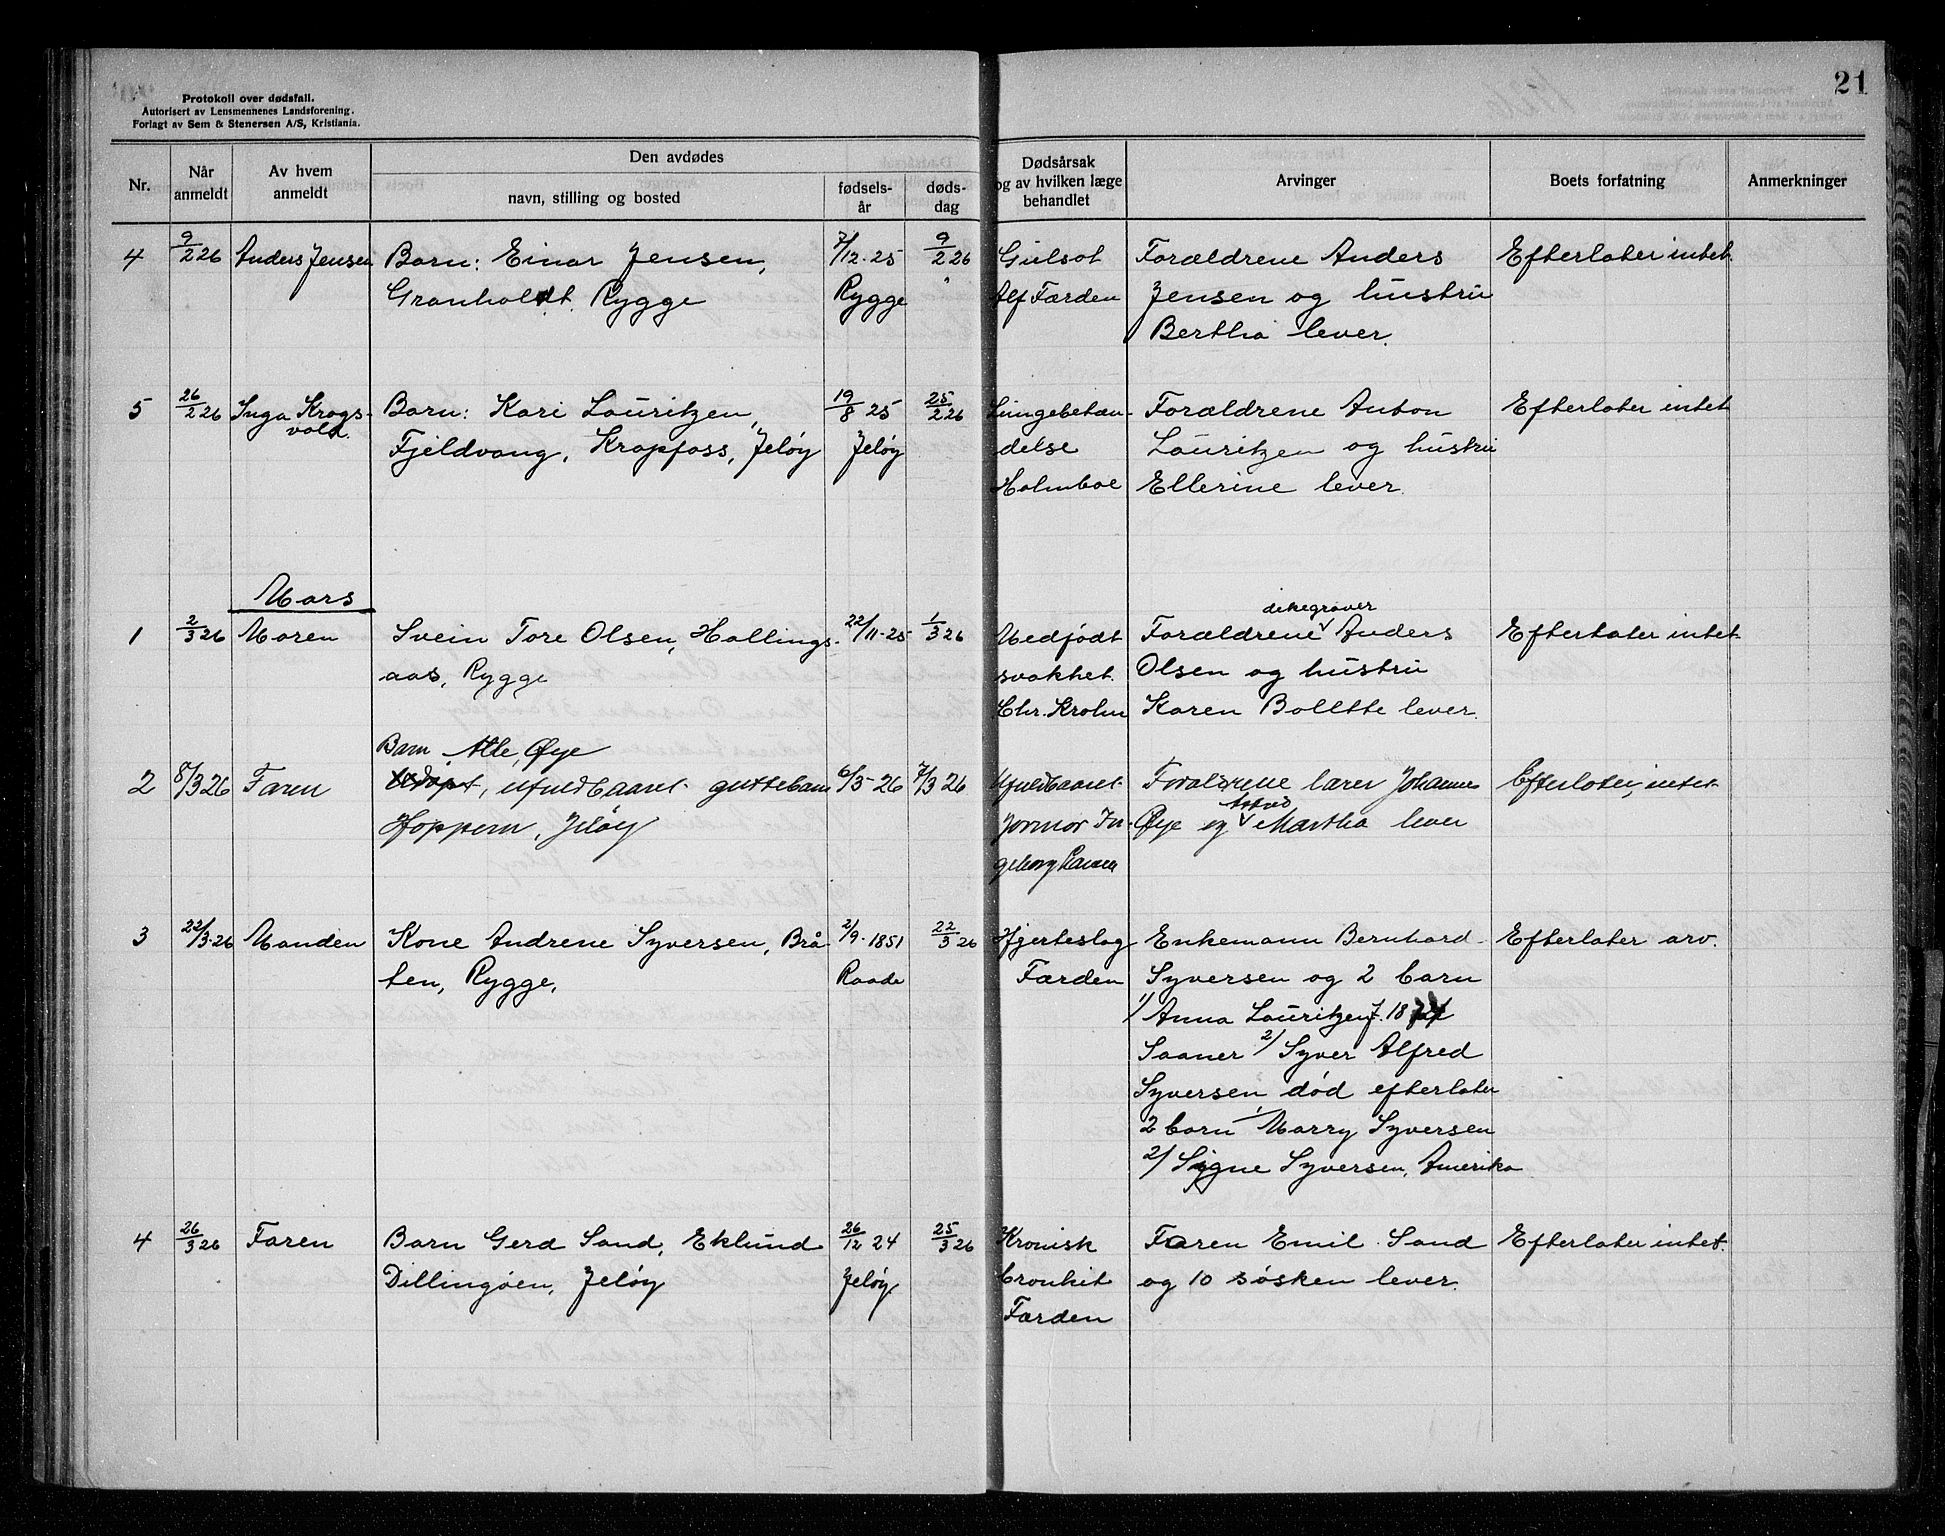 21
Protokoll over dødsfall.
Autorisert av Lensmennenes Landsforening.
Forlagt av Sem & Stenersen A/S, Kristiania.
Nr.
Når anmeldt
Av hvem anmeldt
Den avdødes
navn, stilling og bosted
fødsels-år
døds-dag
Dødsårsak og av hvilken læge behandlet
Arvinger
Boets forfatning
Anmerkninger
4 9/2 26 Anders Jensen Barn: Einar Jensen, 7/12-25 9/2 26 Gulsot Forældrene Anders Efterlater intet
Granholdt. Rygge Rygge " Alf Færden Jensen og hustru
Bertha lever.
5 26/2 26 Inga Krogs- Barn: Kari Lauritzen, 19/8 25 25/2 26 Lungebetæn- Forældrene Anton Efterlater intet
vold. Fjeldvang, Krapfoss, Jeløy Jeløy delse Lauritzen og hustru
Holmboe Ellerine lever.
Mars
dikegraver
1 2/3 26 Moren Svein Tore Olsen, Hallings- 22/11-25 1/3 26 Medfødt Forældrene Anders Efterlater intet
aas, Rygge svakhet. Olsen og hustru
Chr. Krohn Karen Bollette lever.
Barn Atle, Øye
2 8/3 26 Faren ufuldbaaret guttebarn 6/3-26 7/3 26 Ufuldbaaret Forældrene lærer Johannes Efterlater intet
Hoppern, Jeløy Jormor In- Øye og Martha lever
geborg
3 22/3-26 Manden Kone Andrene Syversen, Brå- 2/9-1851 22/3 26 Hjerteslag Enkemann Bernhard Efterlater arv.
ten, Rygge, Raade Færden Syversen og 2 barn
1/ Anna Lauritzen f. 18
Saaner 2/ Syver Alfred
Syversen død efterlater
2 barn 1/ Marry Syversen
2/ Signe Syversen, Amerika
4 26/3 26 Faren Barn Gerd Sand, Eklund 26/12 24 25/3 26 Kronisk Faren Emil Sand Efterlater intet.
Dillingøen, Jeløy Jeløy bronkit og 10 søsken lever.
Færden